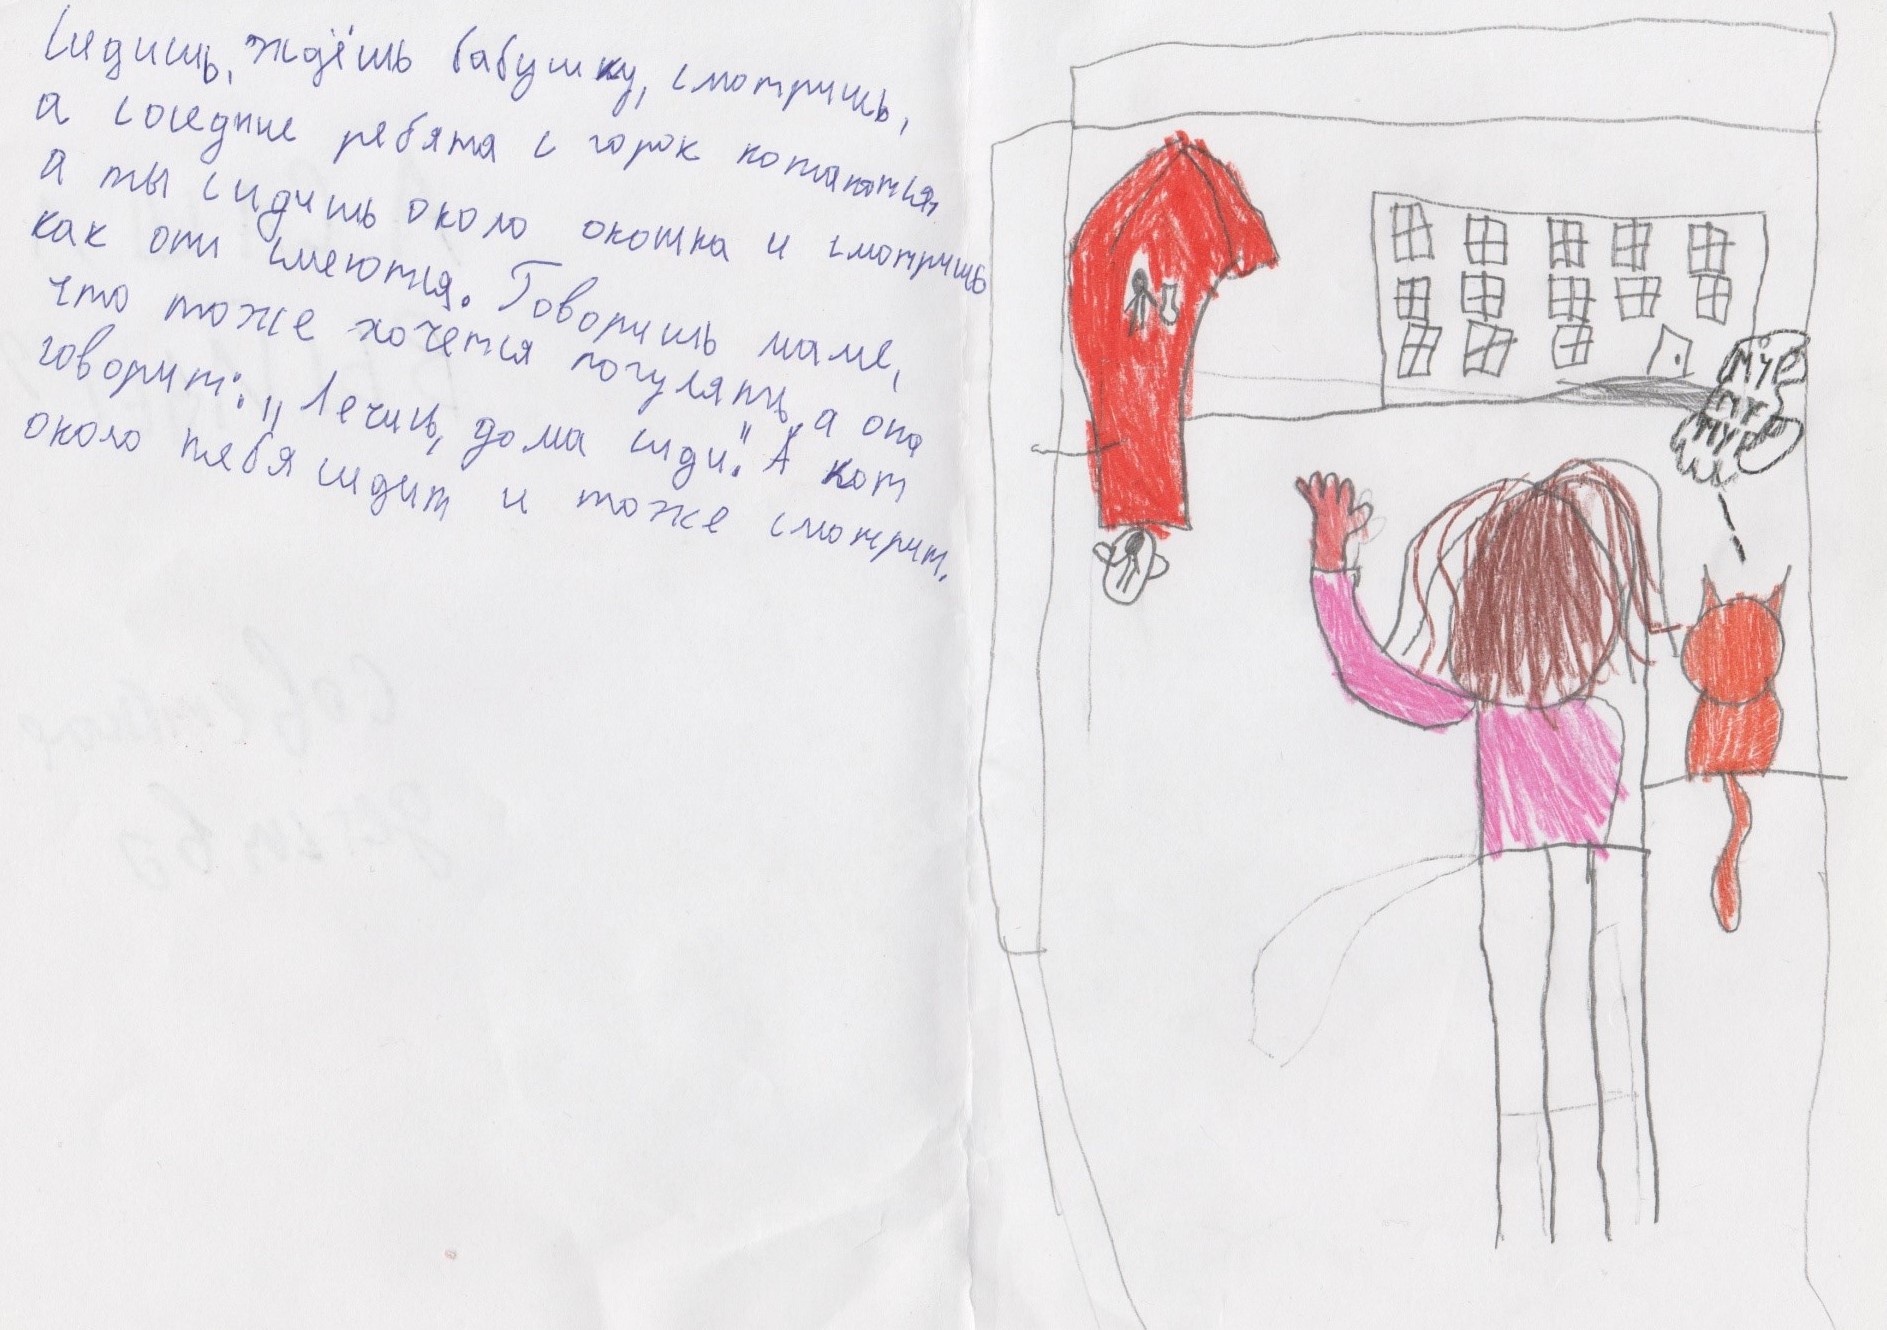 Сидишь, ждёшь бабушку, смотришь,
а соседние ребята с горок катаются,
а ты сидишь около окошка и смотришь
как они смеются. Говоришь маме,
что тоже хочется погулять, а она
говорит: „Лечись, дома сиди." А кот
около тебя сидит и тоже смотрит.
МУР
МУР
МУР